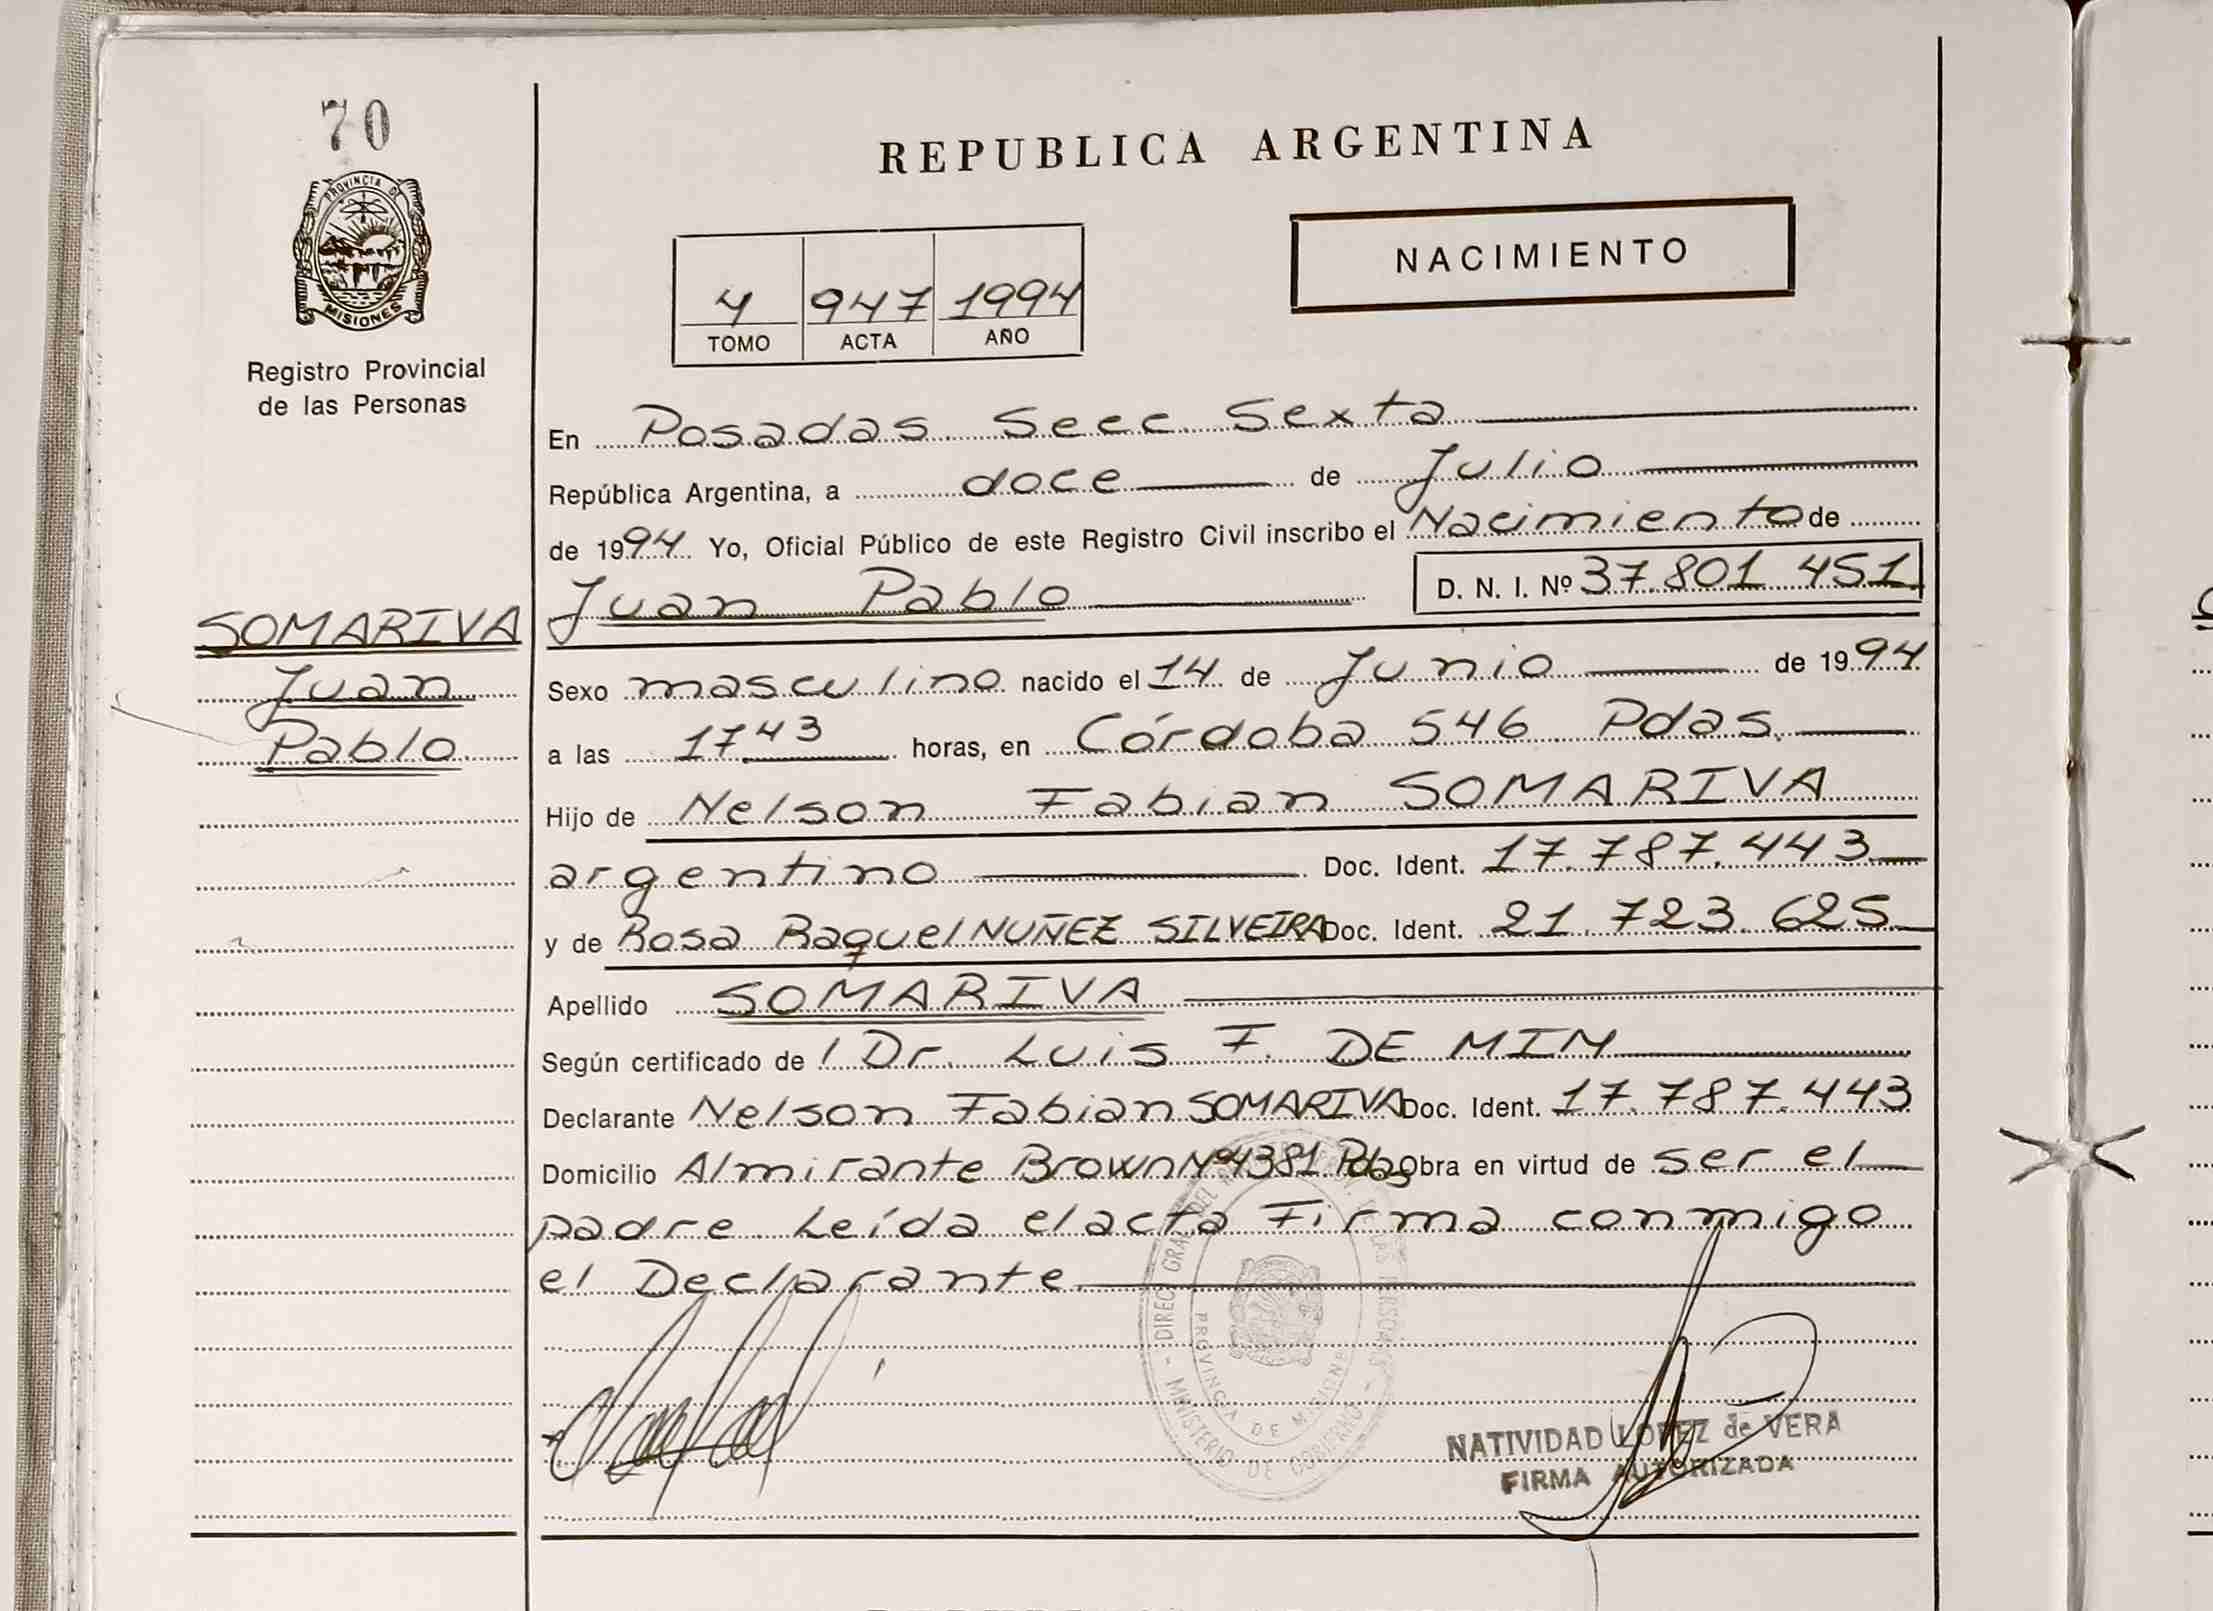 70
PROVINCIA DE
MISIONES
Registro Provincial
de las Personas
SOMARIVA
Juan
Pablo
REPUBLICA ARGENTINA
NACIMIENTO
4 947 1994
TOMO ACTA AÑO
En Posadas Secc Sexta
República Argentina, a doce de Julio
de 1994 Yo, Oficial Público de este Registro Civil inscribo el Nacimiento de
Juan Pablo D. N. I. Nº 37.801 451
Sexo masculino nacido el 14 de Junio de 1994
a las 17 43 horas, en Córdoba 546 Pdas.
Hijo de Nelson Fabian SOMARIVA
argentino Doc. Ident. 17.787.443
y de Rosa Raquel NUÑEZ SILVEIRA Doc. Ident. 21.723.625
Apellido SOMARIVA
Según certificado de l Dr. Luis F. DE MIN
Declarante Nelson Fabian SOMARIVA Doc. Ident. 17.787.443
Domicilio Almirante Brown Nº 4381 Pdas Obra en virtud de ser el
padre. Leída el acta Firma conmigo
el Declarante
PROVINCIA DE MISIONES
MINISTERIO DE GOBIERNO
NATIVIDAD LOPEZ de VERA
FIRMA AUTORIZADA